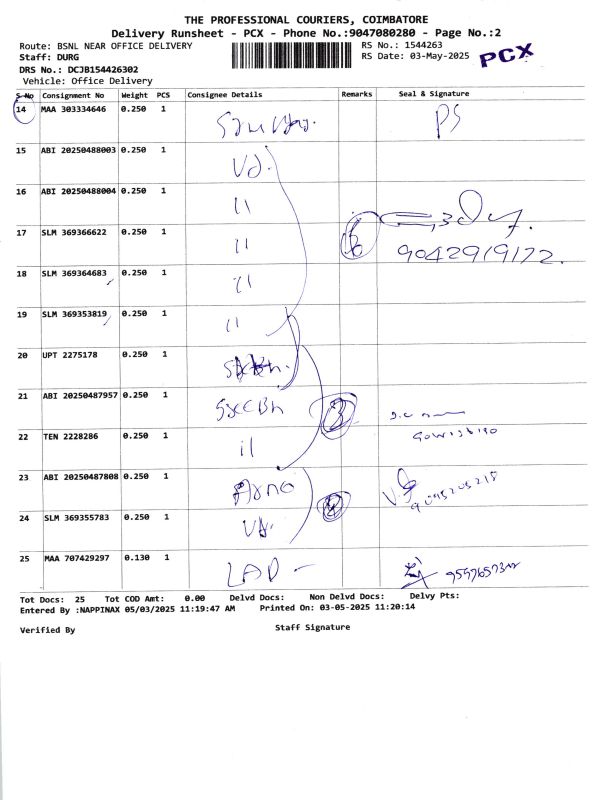 THE PROFESSIONAL COURIERS, COIMBATORE
Delivery Runsheet - PCX - Phone No.:9047080280 - Page No.:2
Route: BSNL NEAR OFFICE DELIVERY RS No.: 1544263
Staff: DURG RS Date: 03-May-2025 PCX
DRS No.: DCJB154426302
Vehicle: Office Delivery
S No Consignment No Weight PCS Consignee Details Remarks Seal & Signature
14 MAA 303334646 0.250 1 PS
15 ABI 20250488003 0.250 1 Vd.
16 ABI 20250488004 0.250 1 11
17 SLM 369366622 0.250 1 11
9042919172.
18 SLM 369364683 0.250 1 11
19 SLM 369353819 0.250 1 11
20 UPT 2275178 0.250 1
21 ABI 20250487957 0.250 1 3
22 TEN 2228286 0.250 1 11
23 ABI 20250487808 0.250 1
24 SLM 369355783 0.250 1
25 MAA 707429297 0.130 1 LAD -
Tot Docs: 25 Tot COD Amt: 0.00 Delvd Docs: Non Delvd Docs: Delvy Pts:
Entered By :NAPPINAX 05/03/2025 11:19:47 AM Printed On: 03-05-2025 11:20:14
Verified By Staff Signature